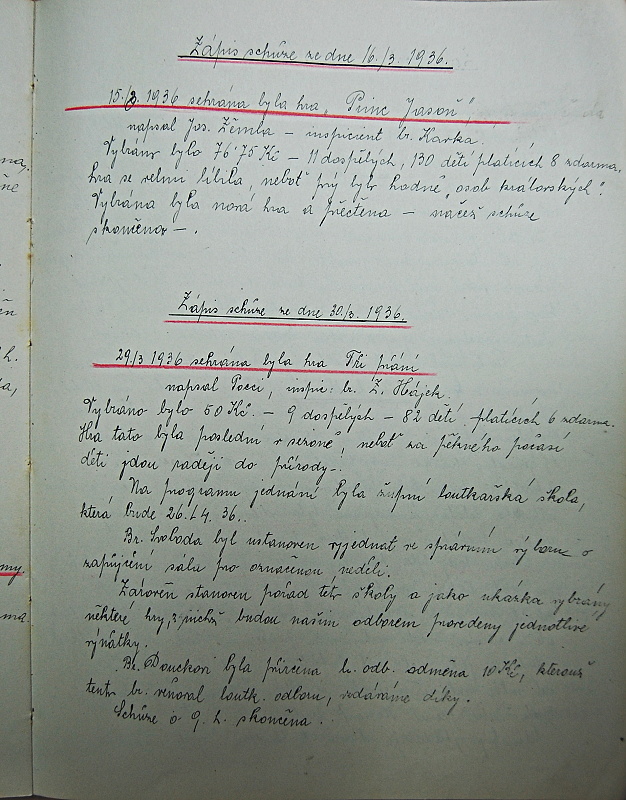 Zápis schůze ze dne 16./3. 1936.
15./3. 1936 sehrána byla hra „Princ Jasoň",
napsal Jos. Žemla – inspicient br. Karka.
Vybráno bylo 76˙75 Kč – 11 dospělých, 130 dětí platících 8 zdarma.
Hra se velmi líbila, neboť prý bylo hodně „osob královských".
Vybrána byla nová hra a přečtena – načež schůze
skončena – .
Zápis schůze ze dne 30/3. 1936.
29/3 1936 sehrána byla hra Tři přání
napsal Pocci, inspic: br. Z. Hájek.
Vybráno bylo 50 Kč. – 9 dospělých – 82 dětí platících 6 zdarma.
Hra tato byla poslední v sezoně, neboť za pěkného počasí
děti jdou raději do přírody –.
Na programu jednání byla župní loutkářská škola,
která bude 26./4. 36.
Br. Svoboda byl ustanoven vyjednat ve správním výboru o
zapůjčení sálu pro označenou neděli.
Zároveň stanoven pořad této školy a jako ukázka vybrány
některé hry, z nichž budou naším odborem provedeny jednotlivé
výňatky.
Br. Douckovi byla přiřčena l. odb. odměna 10 Kč, kterouž
tento br. věnoval loutk. odboru, vzdáváme díky.
Schůze o 9. h. skončena.
my